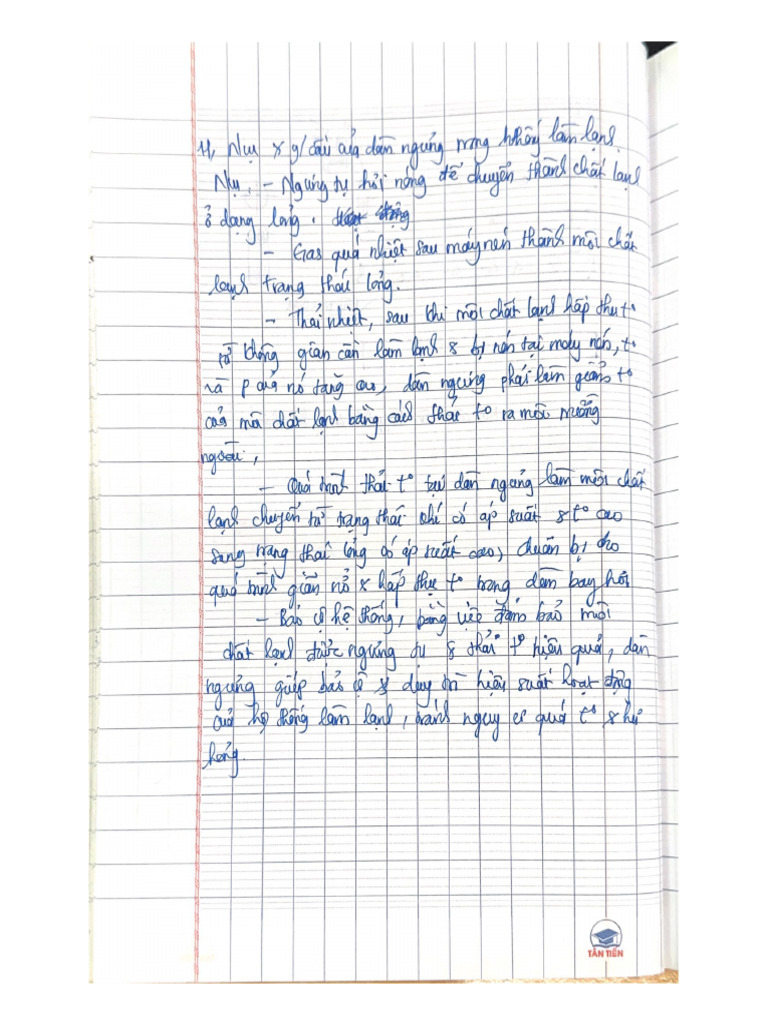 4, Nvụ & y/cầu của dàn ngưng trong hthống làm lạnh.
Nvụ, - Ngưng tụ hơi nóng để chuyển thành chất lạnh
ở dạng lỏng.
- Gas quá nhiệt sau máy nén thành môi chất
lạnh trạng thái lỏng.
- Thải nhiệt, sau khi môi chất lạnh hấp thu t°
từ không gian cần làm lạnh & bị nén tại máy nén, t°
và p của nó tăng cao, dàn ngưng phải làm giảm t°
của môi chất lạnh bằng cách thải t° ra môi trường
ngoài,
- Quá trình thải t° tại dàn ngưng làm môi chất
lạnh chuyển từ trạng thái khí có áp suất & t° cao
sang trạng thái lỏng có áp suất cao, chuẩn bị cho
quá trình giãn nở & hấp thụ t° trong dàn bay hơi
- Bảo vệ hệ thống, bằng việc đảm bảo môi
chất lạnh được ngưng tụ & thải t° hiệu quả, dàn
ngưng giúp bảo vệ & duy trì hiệu suất hoạt động
của hệ thống làm lạnh, tránh nguy cơ quá t° & hư
hỏng.
TÂN TIẾN